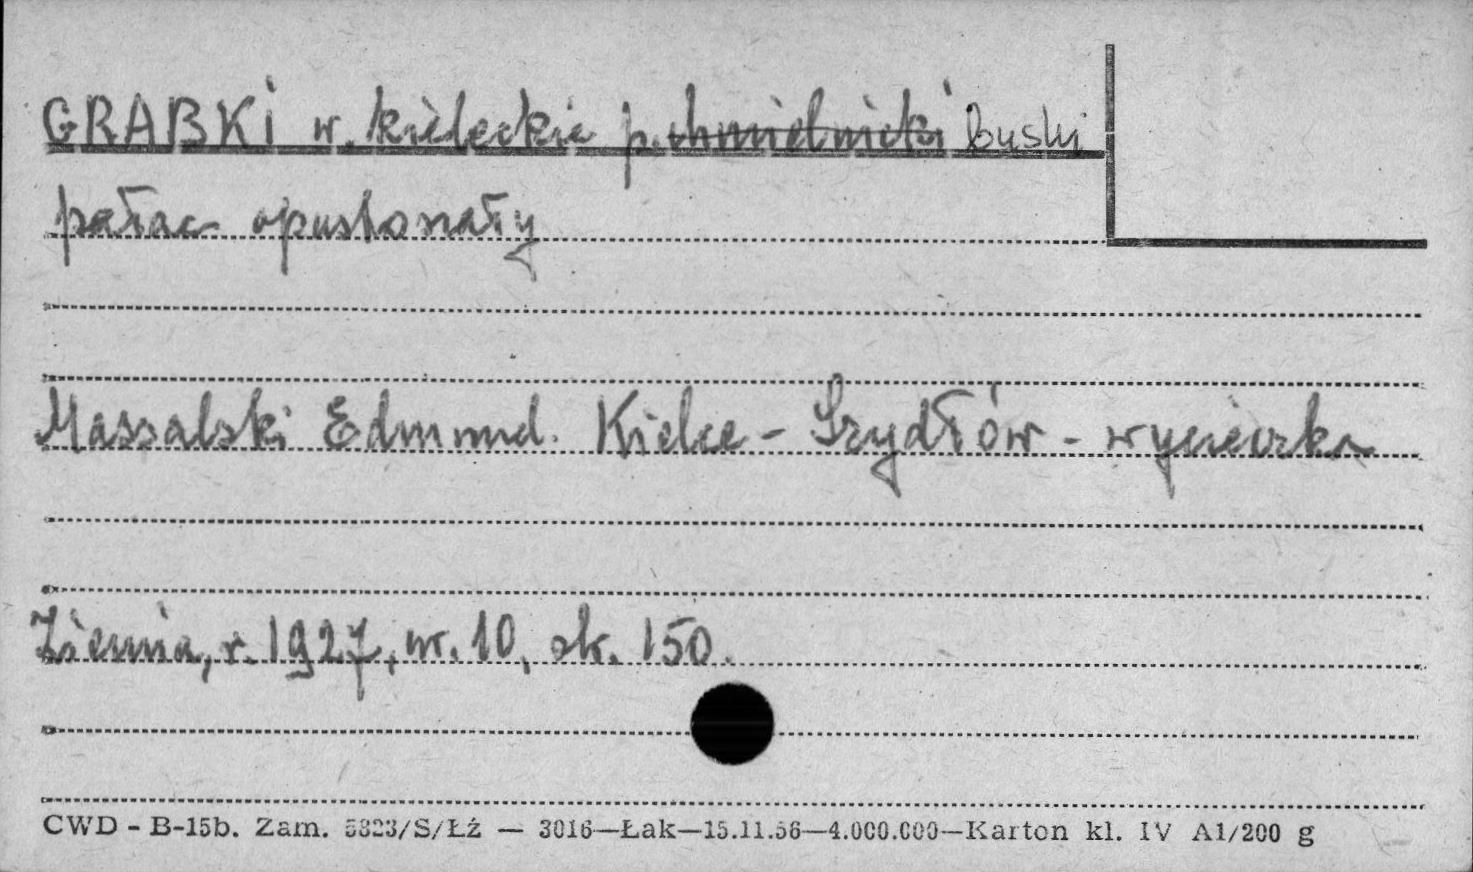 GRABKI w. kieleckie p. chmielnicki buski
pałac opustoszały
Massalski Edmund. Kielce - Szydłów - wycieczka
Ziemia, r. 1927, nr. 10, str. 150.
CWD - B-15b. Zam. 5323/S/Łż — 3016—Łak—15.11.56—4.000.000—Karton kl. IV A1/200 g